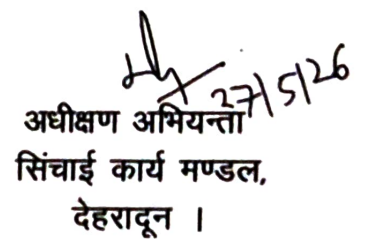 27/5/26
अधीक्षण अभियन्ता
सिंचाई कार्य मण्डल,
देहरादून ।